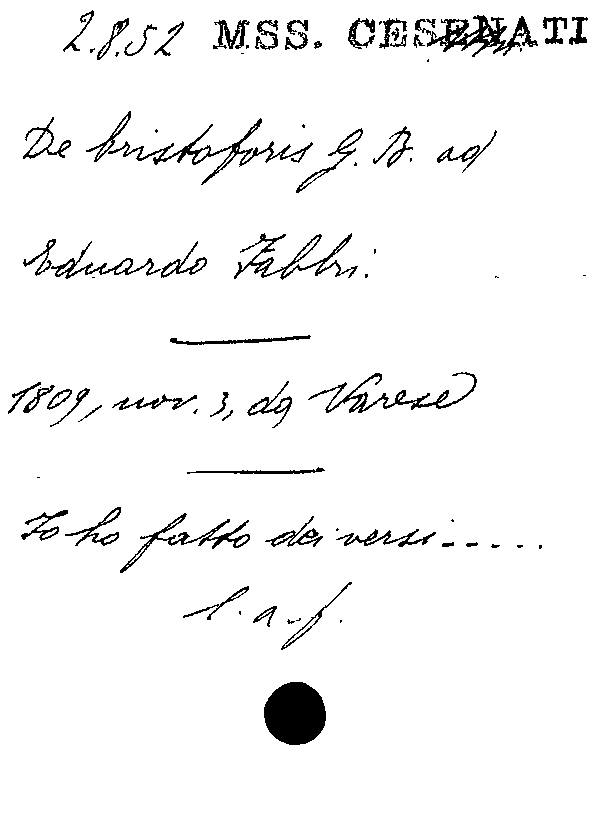 2.8.52 MSS. CESENATI
De Cristoforis G. B. ad
Eduardo Fabbri.
1809, nov. 3, da Varese
Io ho fatto dei versi.....
l. a. f.